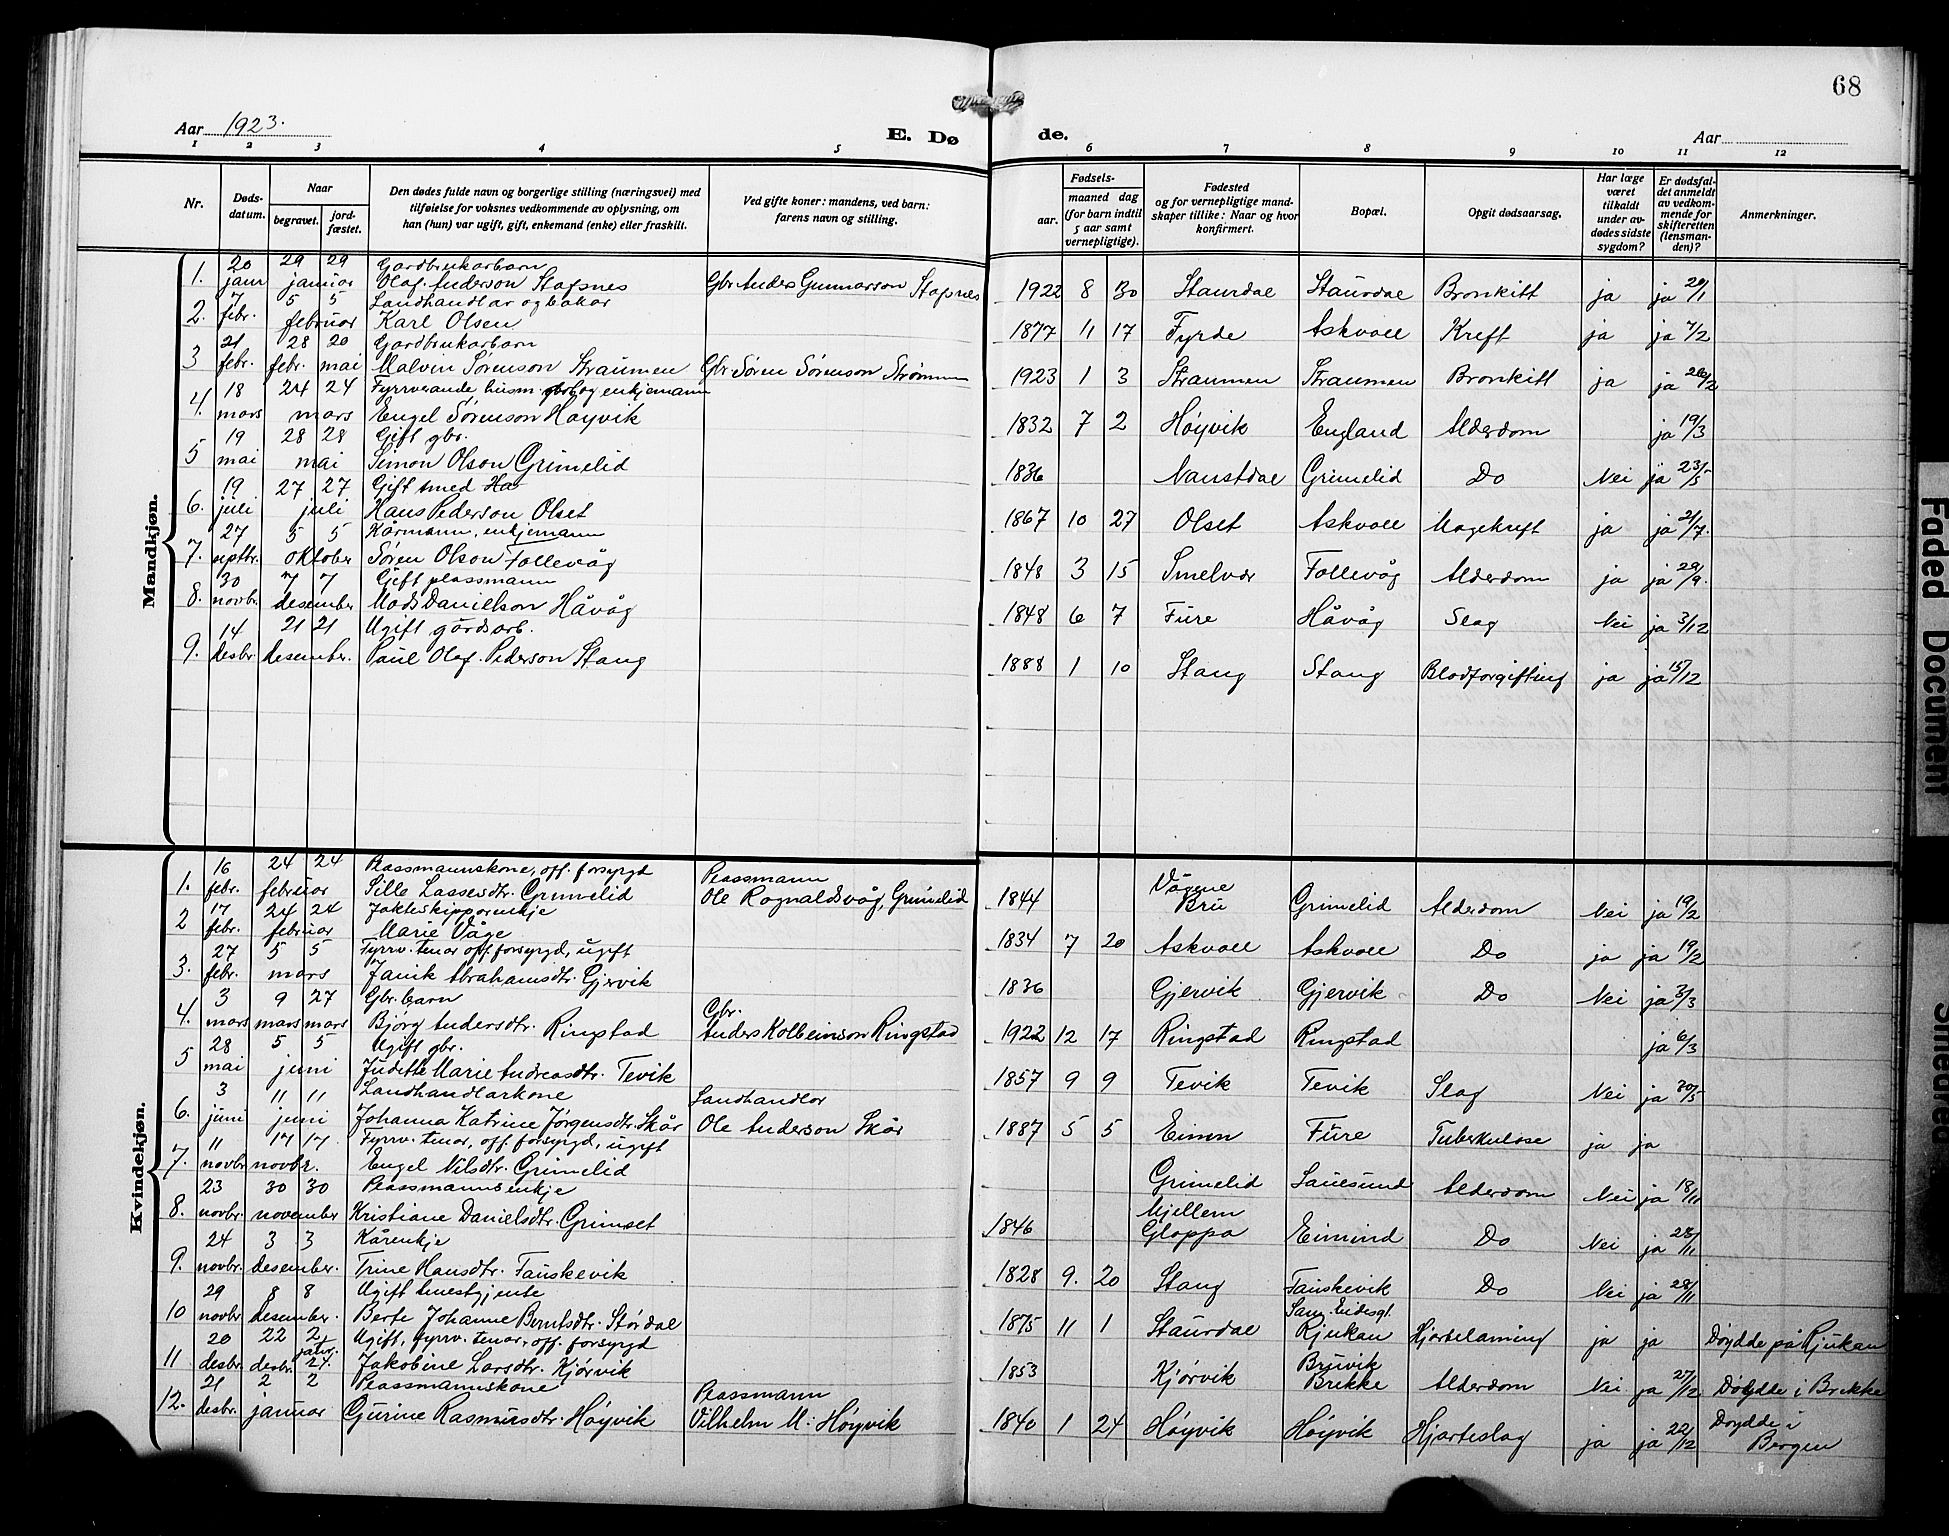 68
Aar 1923.
E. Dø
de.
Aar
1 2 3 4 5 6 7 8 9 10 11 12
Nr.
Døds-
datum.
Naar
begravet.
jord-
fæstet.
Den dødes fulde navn og borgerlige stilling (næringsvei) med
tilføielse for voksnes vedkommende av oplysning, om
han (hun) var ugift, gift, enkemand (enke) eller fraskilt.
Ved gifte koner: mandens, ved barn:
farens navn og stilling.
Fødsels-
aar.
maaned dag
(for barn indtil
5 aar samt
vernepligtige).
Fødested
og for vernepligtige mand-
skaper tillike: Naar og hvor
konfirmert.
Bopæl.
Opgit dødsaarsag.
Har læge
været
tilkaldt
under av-
dødes sidste
sygdom?
Er dødsfal-
det anmeldt
av vedkom-
mende for
skifteretten
(lensman-
den)?
Anmerkninger.
Mandkjøn.
20 29 29 Gardbrukarbarn
1. jam januar Olaf Anderson Stafsnes Gbr. Anders Gunnarson Stafsnes 1922 8 30 Staurdal Staurdal Bronkitt ja ja 20/1
7 5 5 Landhandlar og bakar
2. febr. februar Karl Olsen 1877 11 17 Fyrde Askvoll Kreft ja ja 7/2
21 28 20 Gardbrukarbarn
3 febr. febr. mai Malvin Sørenson Straumen Gbr. Søren Sørenson Strømmen 1923 1 3 Straumen Straumen Bronkitt ja ja 26/2
18 24 24 Fyrrverande husm. og enkjemann
4. mars mars Engel Sørenson Høyvik 1832 7 2 Høyvik England Alderdom ja 19/3
19 28 28 Gift gbr.
5 mai mai Simon Olson Grimelid 1836 Naustdal Grimelid Do Nei ja 23/5
19 27 27 Gift smed Ha
6. juli juli Hans Pederson Olset 1867 10 27 Olset Askvoll Magekreft ja ja 21/7.
27 5 5 Kårmann, enkjemann
7. septbr. oktober Søren Olson Follevåg 1848 3 15 Smelvær Follevåg Alderdom ja ja 29/9.
30 7 7 Gift plassmann
8. novbr. desember Mads Danielson Håvåg 1848 6 7 Fure Håvåg Slag Nei ja 3/12
14 21 21 Ugift gårdsarb.
9. desbr. desember. Paul Olaf Pederson Stang 1888 1 10 Stang Stang Blodforgifting ja ja 15/12
Kvindekjøn.
16 24 24 Plassmannskone, off. forsyrgd Plassmann Vågene
1. febr. februar Sille Lassesdtr. Grimelid Ole Rognaldsvåg, Grimelid 1844 Bru Grimelid Alderdom Nei ja 19/2
17 24 24 Jakteskipparenkje
2 febr. februar Marie Våge 1834 7 20 Askvoll Askvoll Do ja ja 19/2
27 5 5 Fyrrv. tenar off. forsyrgd, ugift
3. febr. mars Janik Abrahamsdtr. Gjervik 1836 Gjervik Gjervik Do Nei ja 3/3
3 9 27 Gbr. barn Gbr.
4. mars mars mars Bjørg Andersdtr. Ringstad Anders Kolbeinson Ringstad 1922 12 17 Ringstad Ringstad ja 6/3
28 5 5 Ugift gbr.
5 mai juni Judithe Marie Andreasdtr. Tevik 1857 9 9 Tevik Tevik Slag Nei ja 30/5
3 11 11 Landhandlarkone Landhandlar
6. juni juni Johanna Katrine Jørgensdtr. Skår Ole Anderson Skår 1887 5 5 Eimen Fure Tuberkulose ja ja
11 17 17 Fyrrv. tenar, off. forsyrgd, ugift
7. novbr novbr. Engel Nilsdtr. Grimelid Grimelid Sauesund Alderdom Nei ja 18/11
23 30 30 Plassmannsenkje Mjellem
8. novbr. november Kristiane Danielsdtr. Grimset 1846 Gloppa Eimind Do Nei ja 28/11
24 3 3 Kårenkje
9. novbr. desember. Trine Hansdtr. Fauskevik 1828 9. 20 Stang Fauskevik Do Nei ja 28/11
29 8 8 Ugift tenestgjente
10 novbr desember. Berte Johanne Berntsdtr. Stórdal 1875 11 1 Staurdal Rjukan Hjartelaming ja ja Døydde på Rjukan
20 22 2 Ugift, fyrrv. tenar, off. forsyrgd Bruvik
11 desbr. desbr. janr. 24. Jakobine Larsdtr. Kjørvik 1853 Kjørvik Brekke Alderdom Nei ja 27/12 Døydde i Brekke
21 2 2 Plassmannskone Plassmann Døydde i
12. desbr. januar Gurine Rasmusdtr. Høyvik Vilhelm M: Høyvik 1840 1 24 Høyvik Høyvik Hjarteslag ja ja 22/12 Bergen
Faded Document